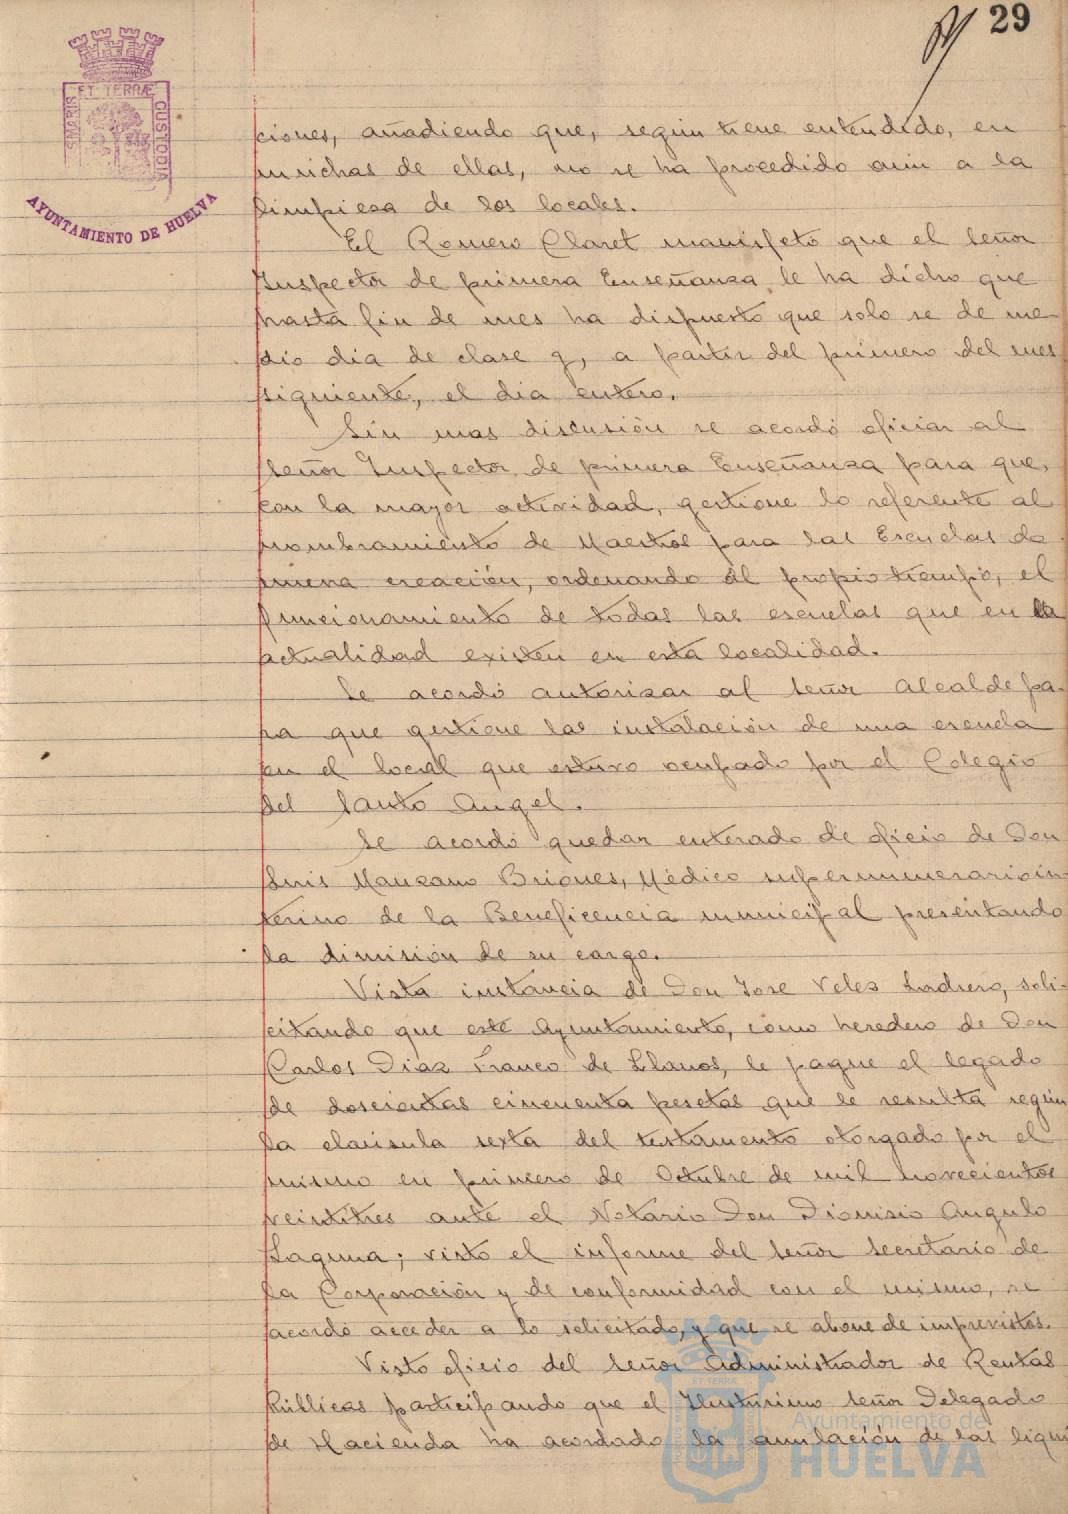 29
ET TERRÆ
MARIS
CUSTODIA
AYUNTAMIENTO DE HUELVA
ciones, añadiendo que, según tiene entendido, en
muchas de ellas, no se ha procedido aun a la
limpieza de los locales.
El Romero Claret manifestó que el señor
Inspector de primera Enseñanza le ha dicho que
hasta fin de mes ha dispuesto que solo se de me-
dio dia de clase y, a partir del primero del mes
siguiente, el dia entero.
Sin mas discusión se acordó oficiar al
señor Inspector de primera Enseñanza para que,
con la mayor actividad, gestione lo referente al
nombramiento de Maestros para las Escuelas de
nueva creación, ordenando al propio tiempo, el
funcionamiento de todas las escuelas que en la
actualidad existen en esta localidad.
Se acordó autorizar al señor Alcalde pa-
ra que gestione las instalación de una escuela
en el local que estuvo ocupado por el Colegio
del Santo Angel.
Se acordó quedar enterado de oficio de Don
Luis Manzano Briones, Médico supernumerario in-
terino de la Beneficencia municipal presentando
la dimisión de su cargo.
Vista instancia de Don Jose Veles Ladrero, soli-
citando que este Ayuntamiento, como heredero de Don
Carlos Diaz Franco de Llanos, le pague el legado
de doscientas cincuenta pesetas que le resulta según
la clausula sexta del testamento otorgado por el
mismo en primero de Octubre de mil novecientos
veintitres ante el Notario Don Dionisio Angulo
Laguna; visto el informe del señor Secretario de
la Corporación y de conformidad con el mismo, se
acordó acceder a lo solicitado, y que se abone de imprevistos.
Visto oficio del señor Administrador de Rentas
Públicas participando que el Ilustrisimo señor Delegado
de Hacienda ha acordado la anulación de las liqui
ET TERRÆ
Ayuntamiento de
HUELVA